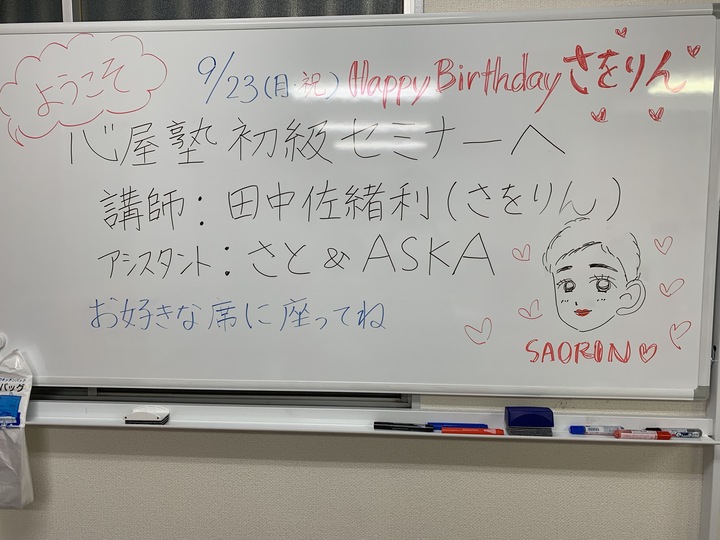 ようこそ
9/23(月・祝) Happy Birthday さをりん
心屋塾 初級セミナーへ
講師：田中佐緒利(さをりん)
アシスタント：さと&ASKA
お好きな席に座ってね
SAORIN
バッグ